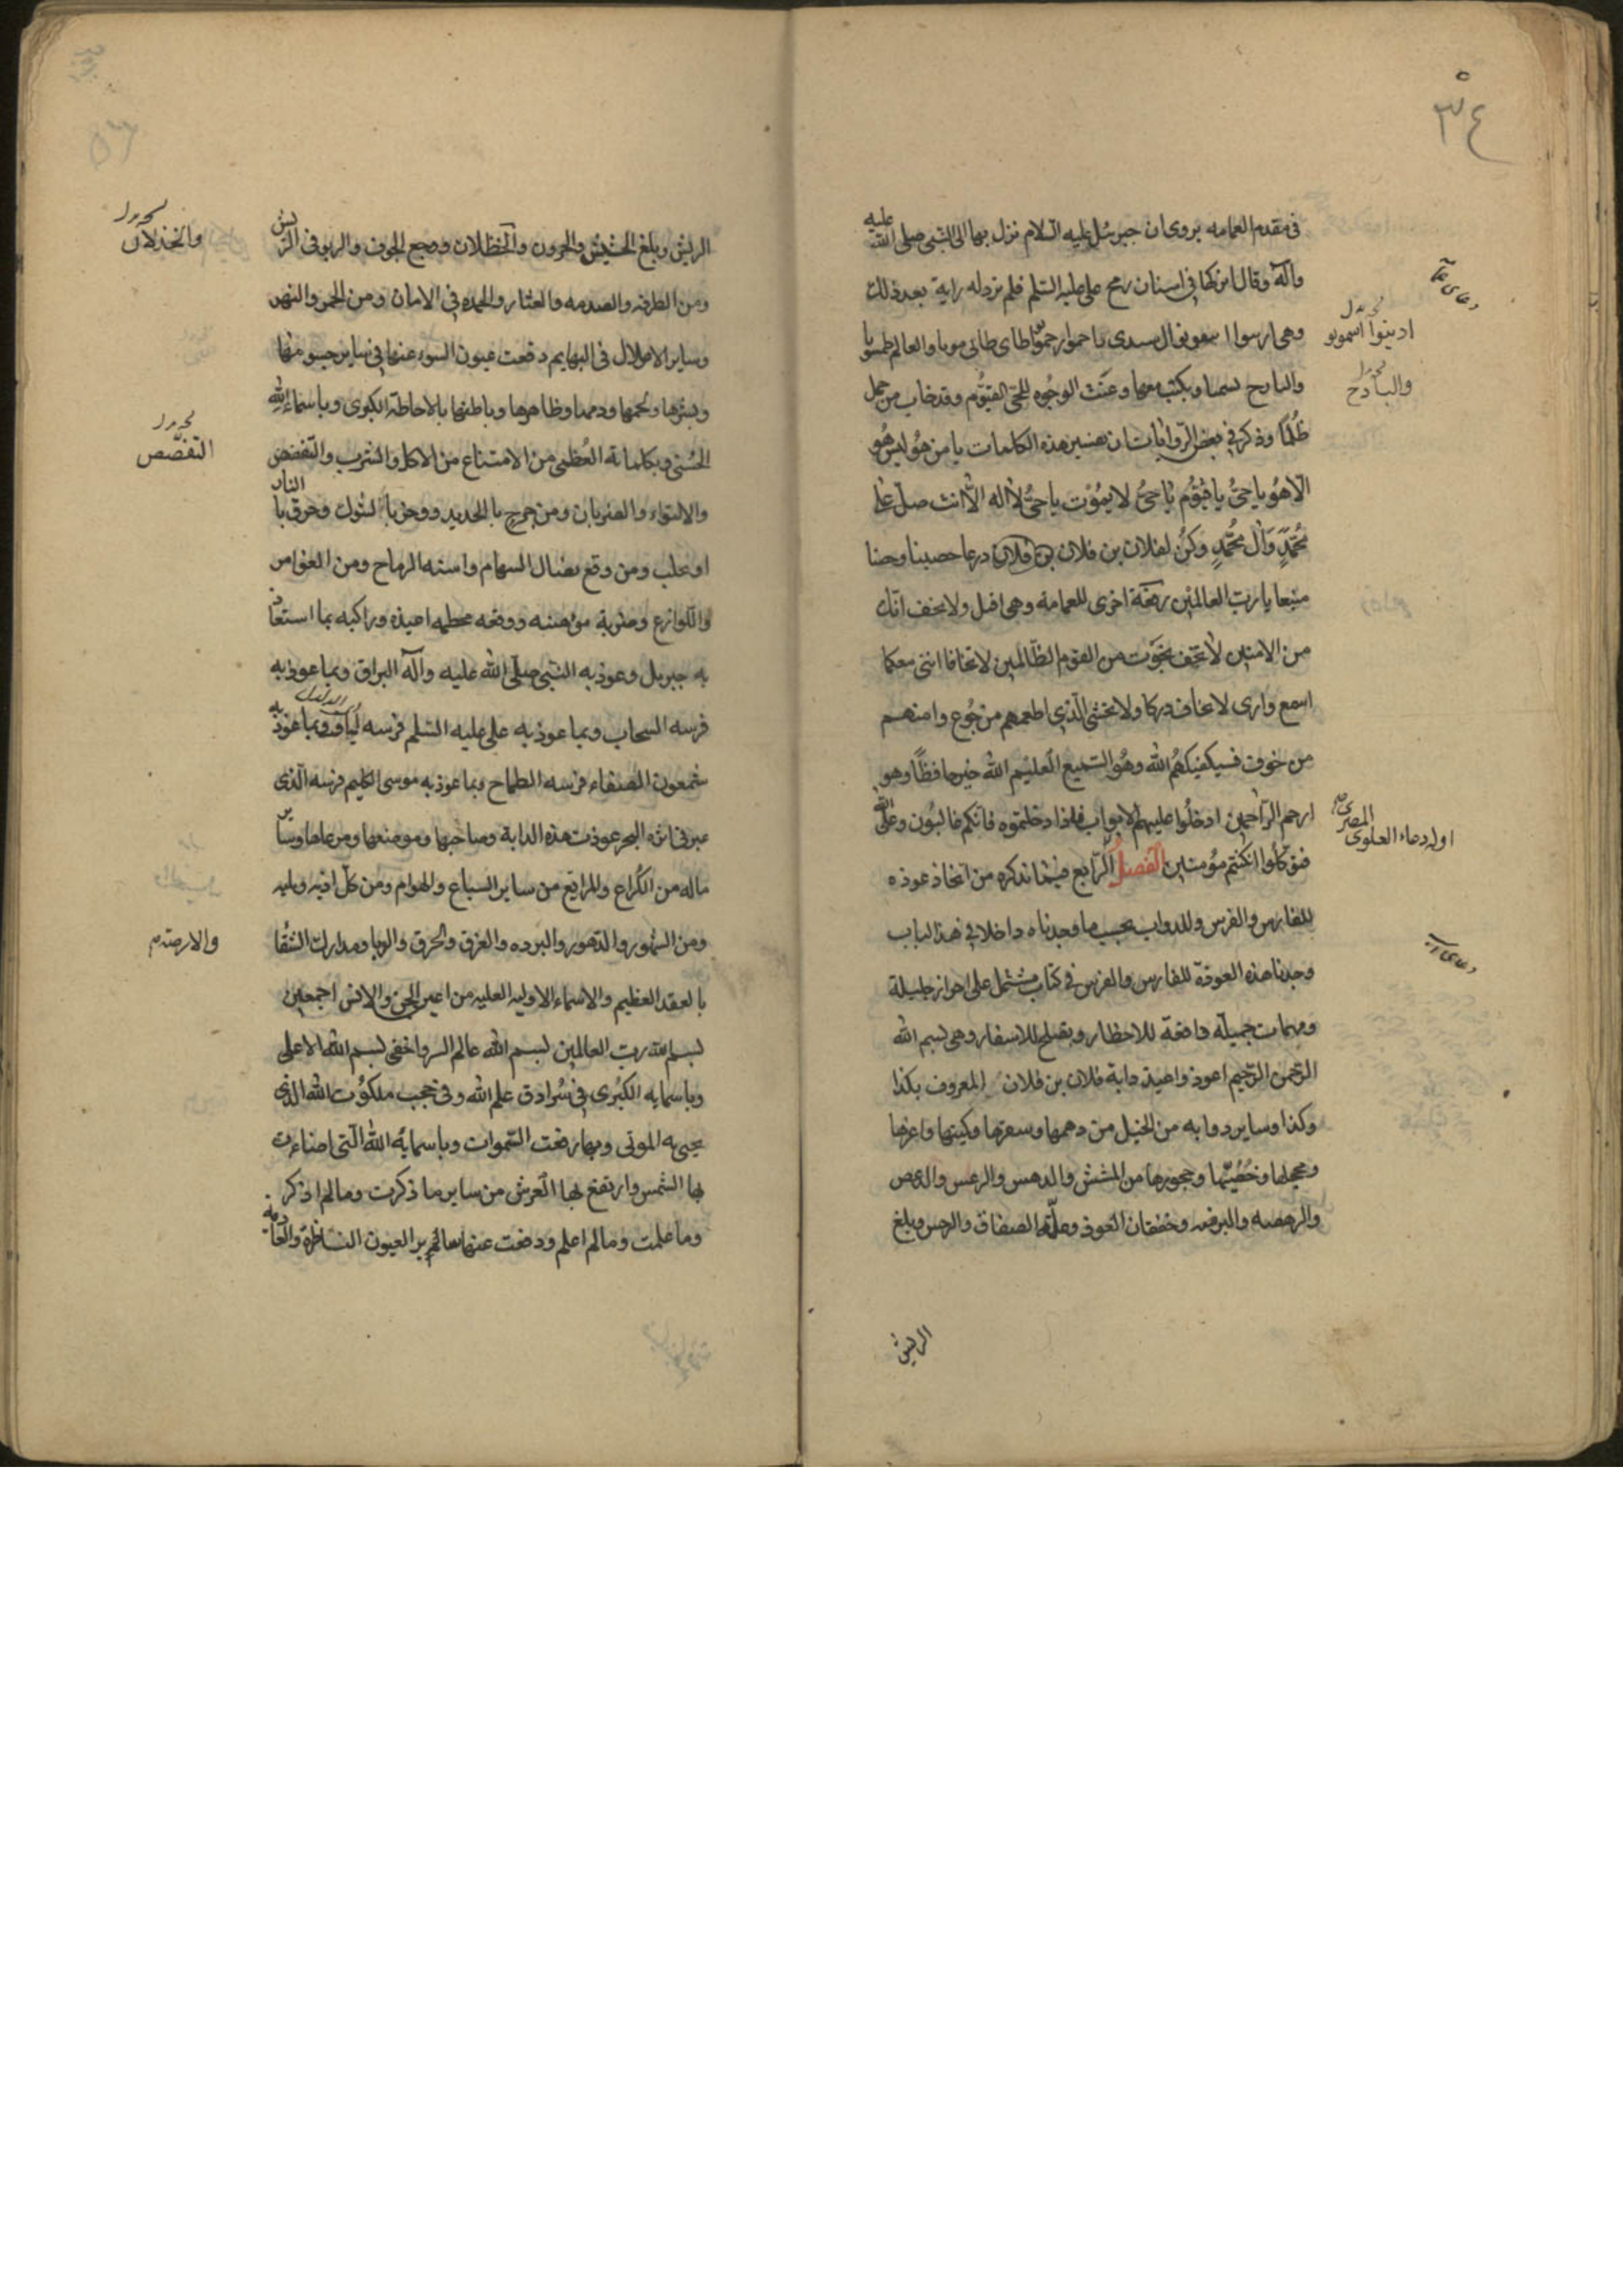 ٣٤
في مقدم العمامه يروى ان جبرئيل عليه السلام نزل بها الى النبي صلى الله عليه
وآله وقال اتركها في اسنان رمح على عليه السلم فلم ترد له راية بعد ذلك
وهي ارسوا
والبادح وبكتب معها وعنت الوجوه للحي القيوم وقد خاب من حمل
ظلما وذكر في بعض الروايات ان هذه الكلمات يا من هو ليس هو
الا هو يا حي يا قيوم يا حي لا يموت يا حي لا اله الا انت صل على
محمد وال محمد وكن لفلان بن فلان بن فلان درعا حصينا وحصنا
منيعا يا رب العالمين رقعة اخرى للعمامة وهي اقبل ولا تخف انك
من الامنين لا تخف نجوت من القوم الظالمين لا تخافا انني معكما
اسمع وارى لا تخاف دركا ولا تخشى الذي اطعمهم من جوع وامنهم
من خوف فسيكفيكهم الله وهو السميع العليم الله خير حافظا وهو
ارحم الراحمين ادخلوا عليهم الابواب فاذا دخلتموه فانكم غالبون وعلى الله
فتوكلوا ان كنتم مؤمنين الفصل الرابع فيما نذكره من اتخاذ عوذه
للفارس والفرس وللدواب بحسب ما وجدناه داخلا في هذا الباب
وجدنا هذه العوذة للفارس والفرس في كتاب مشتمل على احراز جليلة
ومهمات جميله دافعة للاخطار ويصلح للاسفار وهي بسم الله
الرحمن الرحيم اعوذ واعيذ دابة فلان بن فلان المعروف بكذا
وكذا وساير دوابه من الخيل من دهمها وشقرها وكميتها واغرها
ومحجلها وحصنها وحجورها من المشش والدهس والرعس والدعص
والرهصه وخفقان الفؤد وعلة الصفاق والرجس وبلغ
الريش
ادينوا اسموبو
والبادح
اول دعاء العلوى المصرى
الريش وبلغ الحشيش والحرون والخظلان ووجع الجوف والربو في الريش
ومن الطرفه والصدمه والعثار والحمده في الاماق ومن الحمر والنهر
وساير الاعلال في البهايم دفعت عيون السوء عنها في ساير جسومها
وبشرها ولحمها ودمها وظاهرها وباطنها بالاحاطة الكبرى وباسماء الله
الحسنى وبكلماته العظمى من الامتناع من الاكل والشرب والتغصص
والالتواء والضربان ومن جرح بالحديد ووخز بالشوك وحرق بالنار
او مخلب ومن وقع نضال السهام واسنه الرماح ومن الغوامر
واللوادغ وضربة موهنه ووقعه محطمه اعيذه وراكبه بما استعاذ
به جبريل وعوذ به النبي صلى الله عليه وآله البراق وبما عوذ به
فرسه السحاب وبما عوذ به على عليه السلم فرسه لياف وبما عوذ به
شمعون الصفاء فرسه الطماح وبما عوذ به موسى الكليم فرسه الذى
عبر في اثره البحر عوذت هذه الدابة وصاحبها وموضعها ومرعاها وساير
ماله من الكراع والمراتع من ساير السباع والهوام ومن كل اذيه وبليه
ومن الشهور والدهور والبرده والغرق والحرق والوبا ومدارك الشقا
بالعقد العظيم والاسماء الاوليه العليه من اعين الجن والانس اجمعين
بسم الله رب العالمين بسم الله عالم السر واخفى بسم الله الاعلى
وباسمايه الكبرى في سرادق علم الله وفي حجب ملكوت الله الذي
يحيى به الموتى وبها رفعت السموات وباسمائه الله التي اضاءت
بها الشمس وارتفع بها العرش من ساير ما ذكرت وما لم اذكر
وما علمت وما لم اعلم ودفعت عنها ساير العيون الناظرة والعادمه
والخذلان
التغصص
والارضته